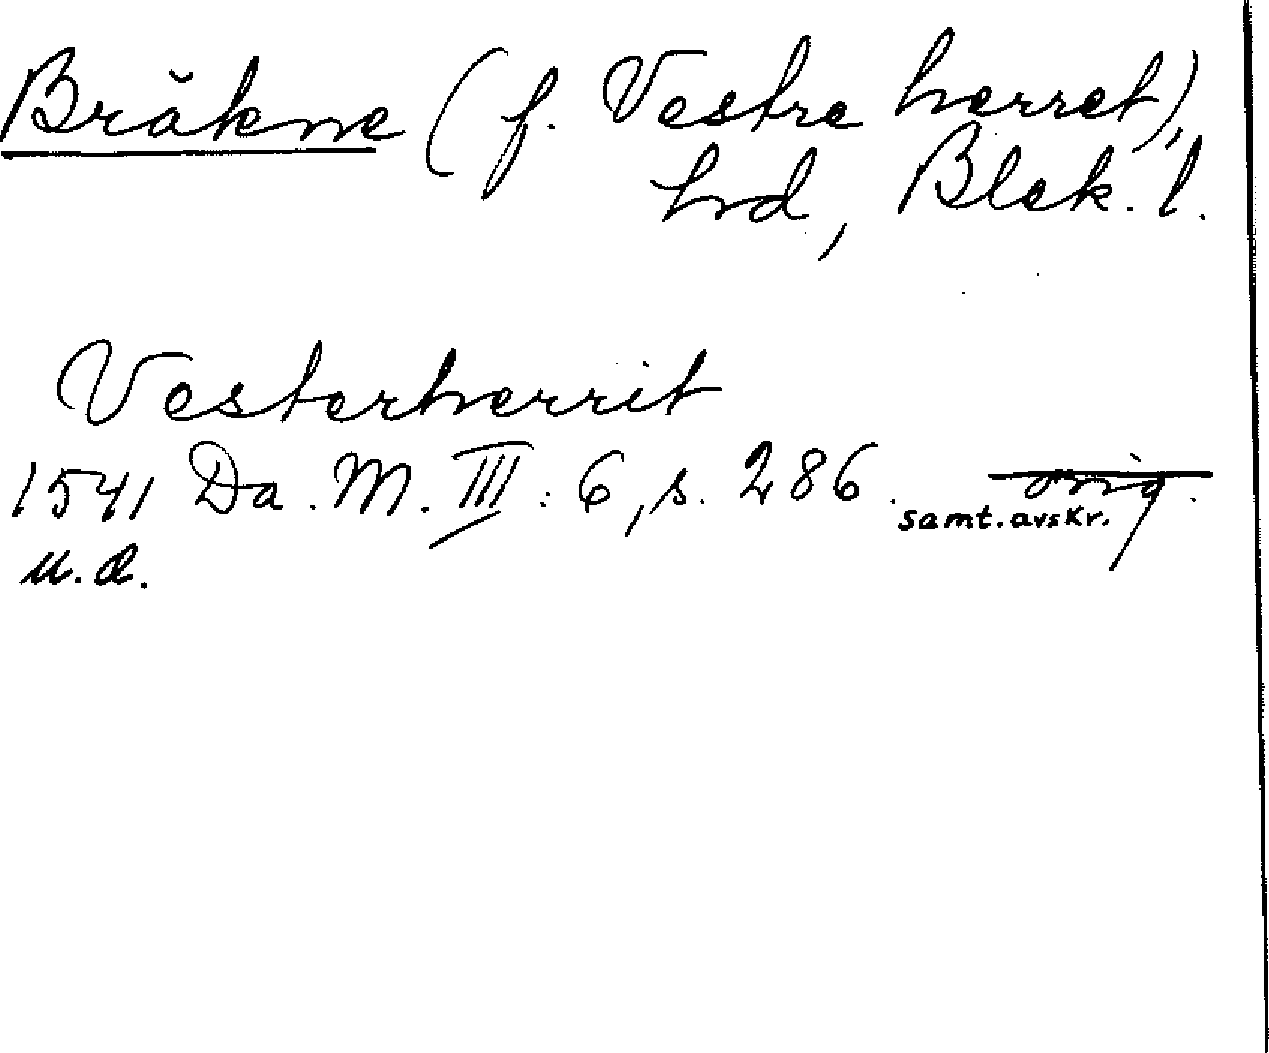 Bräkne (f. Vestra herret),
hrd, Blek. l.
Vesterherrit
1541 Da. M. III: 6, s. 286. orig.
samt. avskr.
u. d.